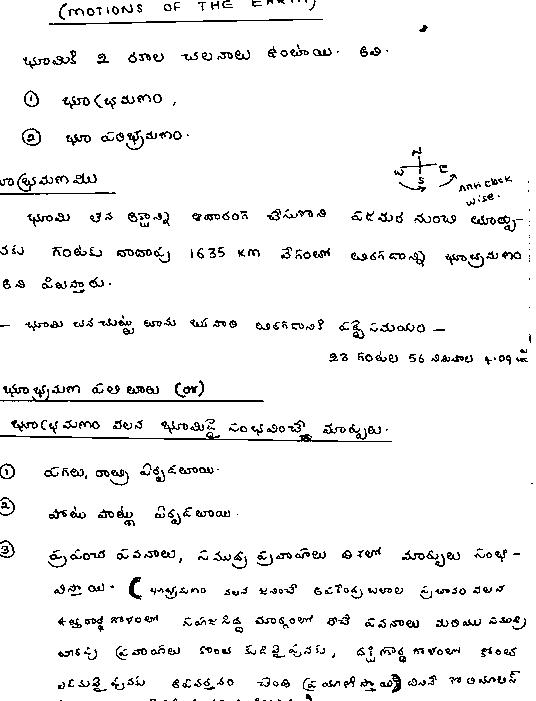 (MOTIONS OF THE EARTH)
భూమికి 2 రకాల చలనాలు ఉంటాయి. అవి.
① భూభ్రమణం,
② భూ పరిభ్రమణం.
N
W E
S
Anti clock
wise.
భూభ్రమణము
భూమి తన అక్షాన్ని ఆధారంగా చేసుకొని పడమర నుంచి తూర్పు-
నకు గంటకు దాదాపు 1635 KM వేగంతో తిరగడాన్ని భూభ్రమణం
అని పిలుస్తారు.
- భూమి తన చుట్టు తాను ఒకసారి తిరగడానికి పట్టే సమయం -
23 గంటల 56 నిమిషాల 4.09 సె
భూభ్రమణ ఫలితాలు (or)
భూభ్రమణం వలన భూమిపై సంభవించే మార్పులు.
① పగలు, రాత్రి ఏర్పడటాయి.
② పోటు పాట్లు ఏర్పడటాయి.
③ ప్రపంచ పవనాలు, సముద్ర ప్రవాహాలు దిశలో మార్పులు సంభ-
విస్తాయి. (భూభ్రమణం వలన జనించే అపకేంద్ర బలాల ప్రభావం వలన
ఉత్తరార్ధ గోళంలో సహజసిద్ధ మార్గంలో వీచే పవనాలు మరియు సముద్ర
ప్రవాహాలు కొంత కుడివైపునకు, దక్షిణార్ధ గోళంలో కొంత
ఎడమవైపునకు అపవర్తనం చెంది ప్రయాణిస్తాయి)